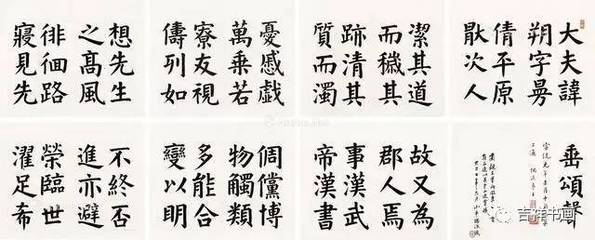 大夫諱
朔字曼
倩平原
猒次人
潔其道
而穢其
跡清其
質而濁
憂慼戲
萬乘若
寮友視
儔列如
想先生
之髙風
徘徊路
寢見先
垂頌聲
故又為
郡人焉
事漢武
帝漢書
倜儻博
物觸類
多能合
變以明
不終否
進亦避
榮臨世
濯足希
吉祥书画